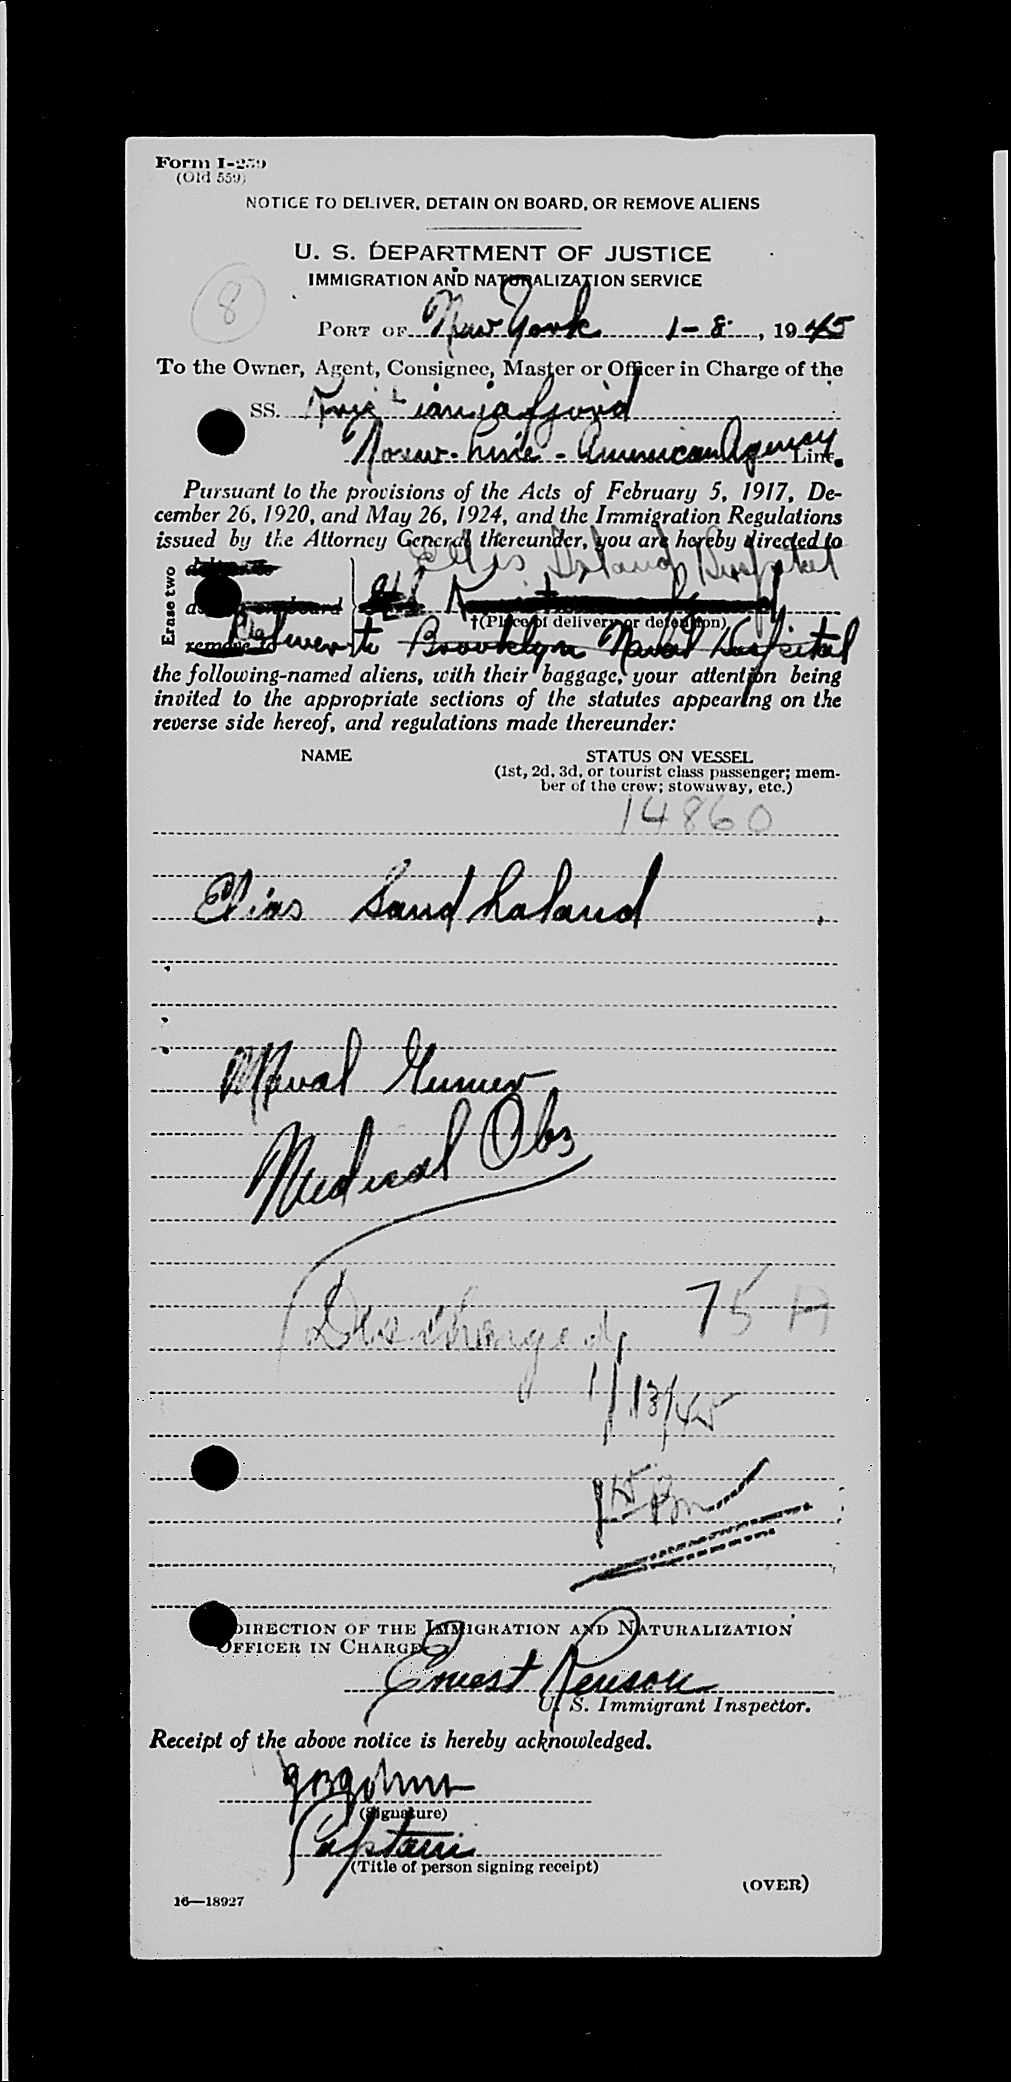 Form I-259
(Old 559)
NOTICE TO DELIVER, DETAIN ON BOARD, OR REMOVE ALIENS
U. S. DEPARTMENT OF JUSTICE
IMMIGRATION AND NATURALIZATION SERVICE
8
PORT OF New York 1-8, 1945
To the Owner, Agent, Consignee, Master or Officer in Charge of the
SS. Kristianiafjord
Norw. Line - American Agency Line.
Pursuant to the provisions of the Acts of February 5, 1917, De-
cember 26, 1920, and May 26, 1924, and the Immigration Regulations
issued by the Attorney General thereunder, you are hereby directed to
Ellis Island Hospital
Erase two
†(Place of delivery or detention)
remove to
Deliver to Brooklyn Naval Hospital
the following-named aliens, with their baggage, your attention being
invited to the appropriate sections of the statutes appearing on the
reverse side hereof, and regulations made thereunder:
NAME STATUS ON VESSEL
(1st, 2d, 3d, or tourist class passenger; mem-
ber of the crew; stowaway, etc.)
14860
Elias Sandhaland
Naval Gunner
Medical Obs
Discharged 75 A
1/13/45
DIRECTION OF THE IMMIGRATION AND NATURALIZATION
OFFICER IN CHARGE
Ernest Renson
U. S. Immigrant Inspector.
Receipt of the above notice is hereby acknowledged.
(Signature)
Captain
(Title of person signing receipt)
(OVER)
16—18927